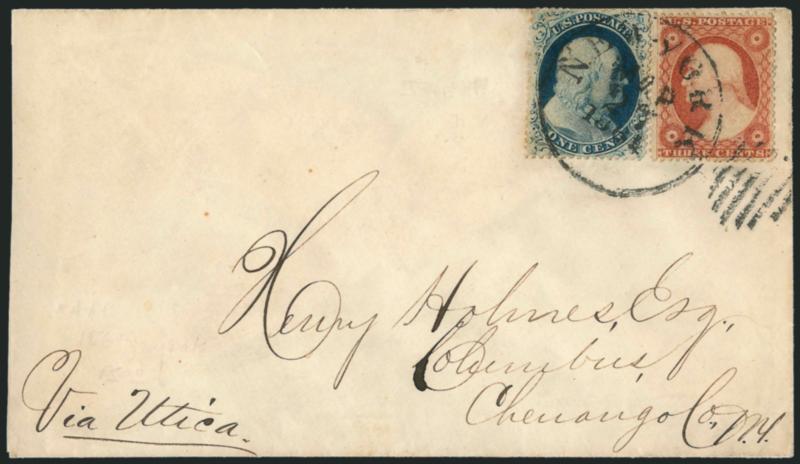 U.S. POSTAGE
ONE CENT
U.S. POSTAGE
THREE CENTS
NEW YORK
Henry Holmes, Esq.,
Columbus,
Chenango Co., N.Y.
Via Utica.